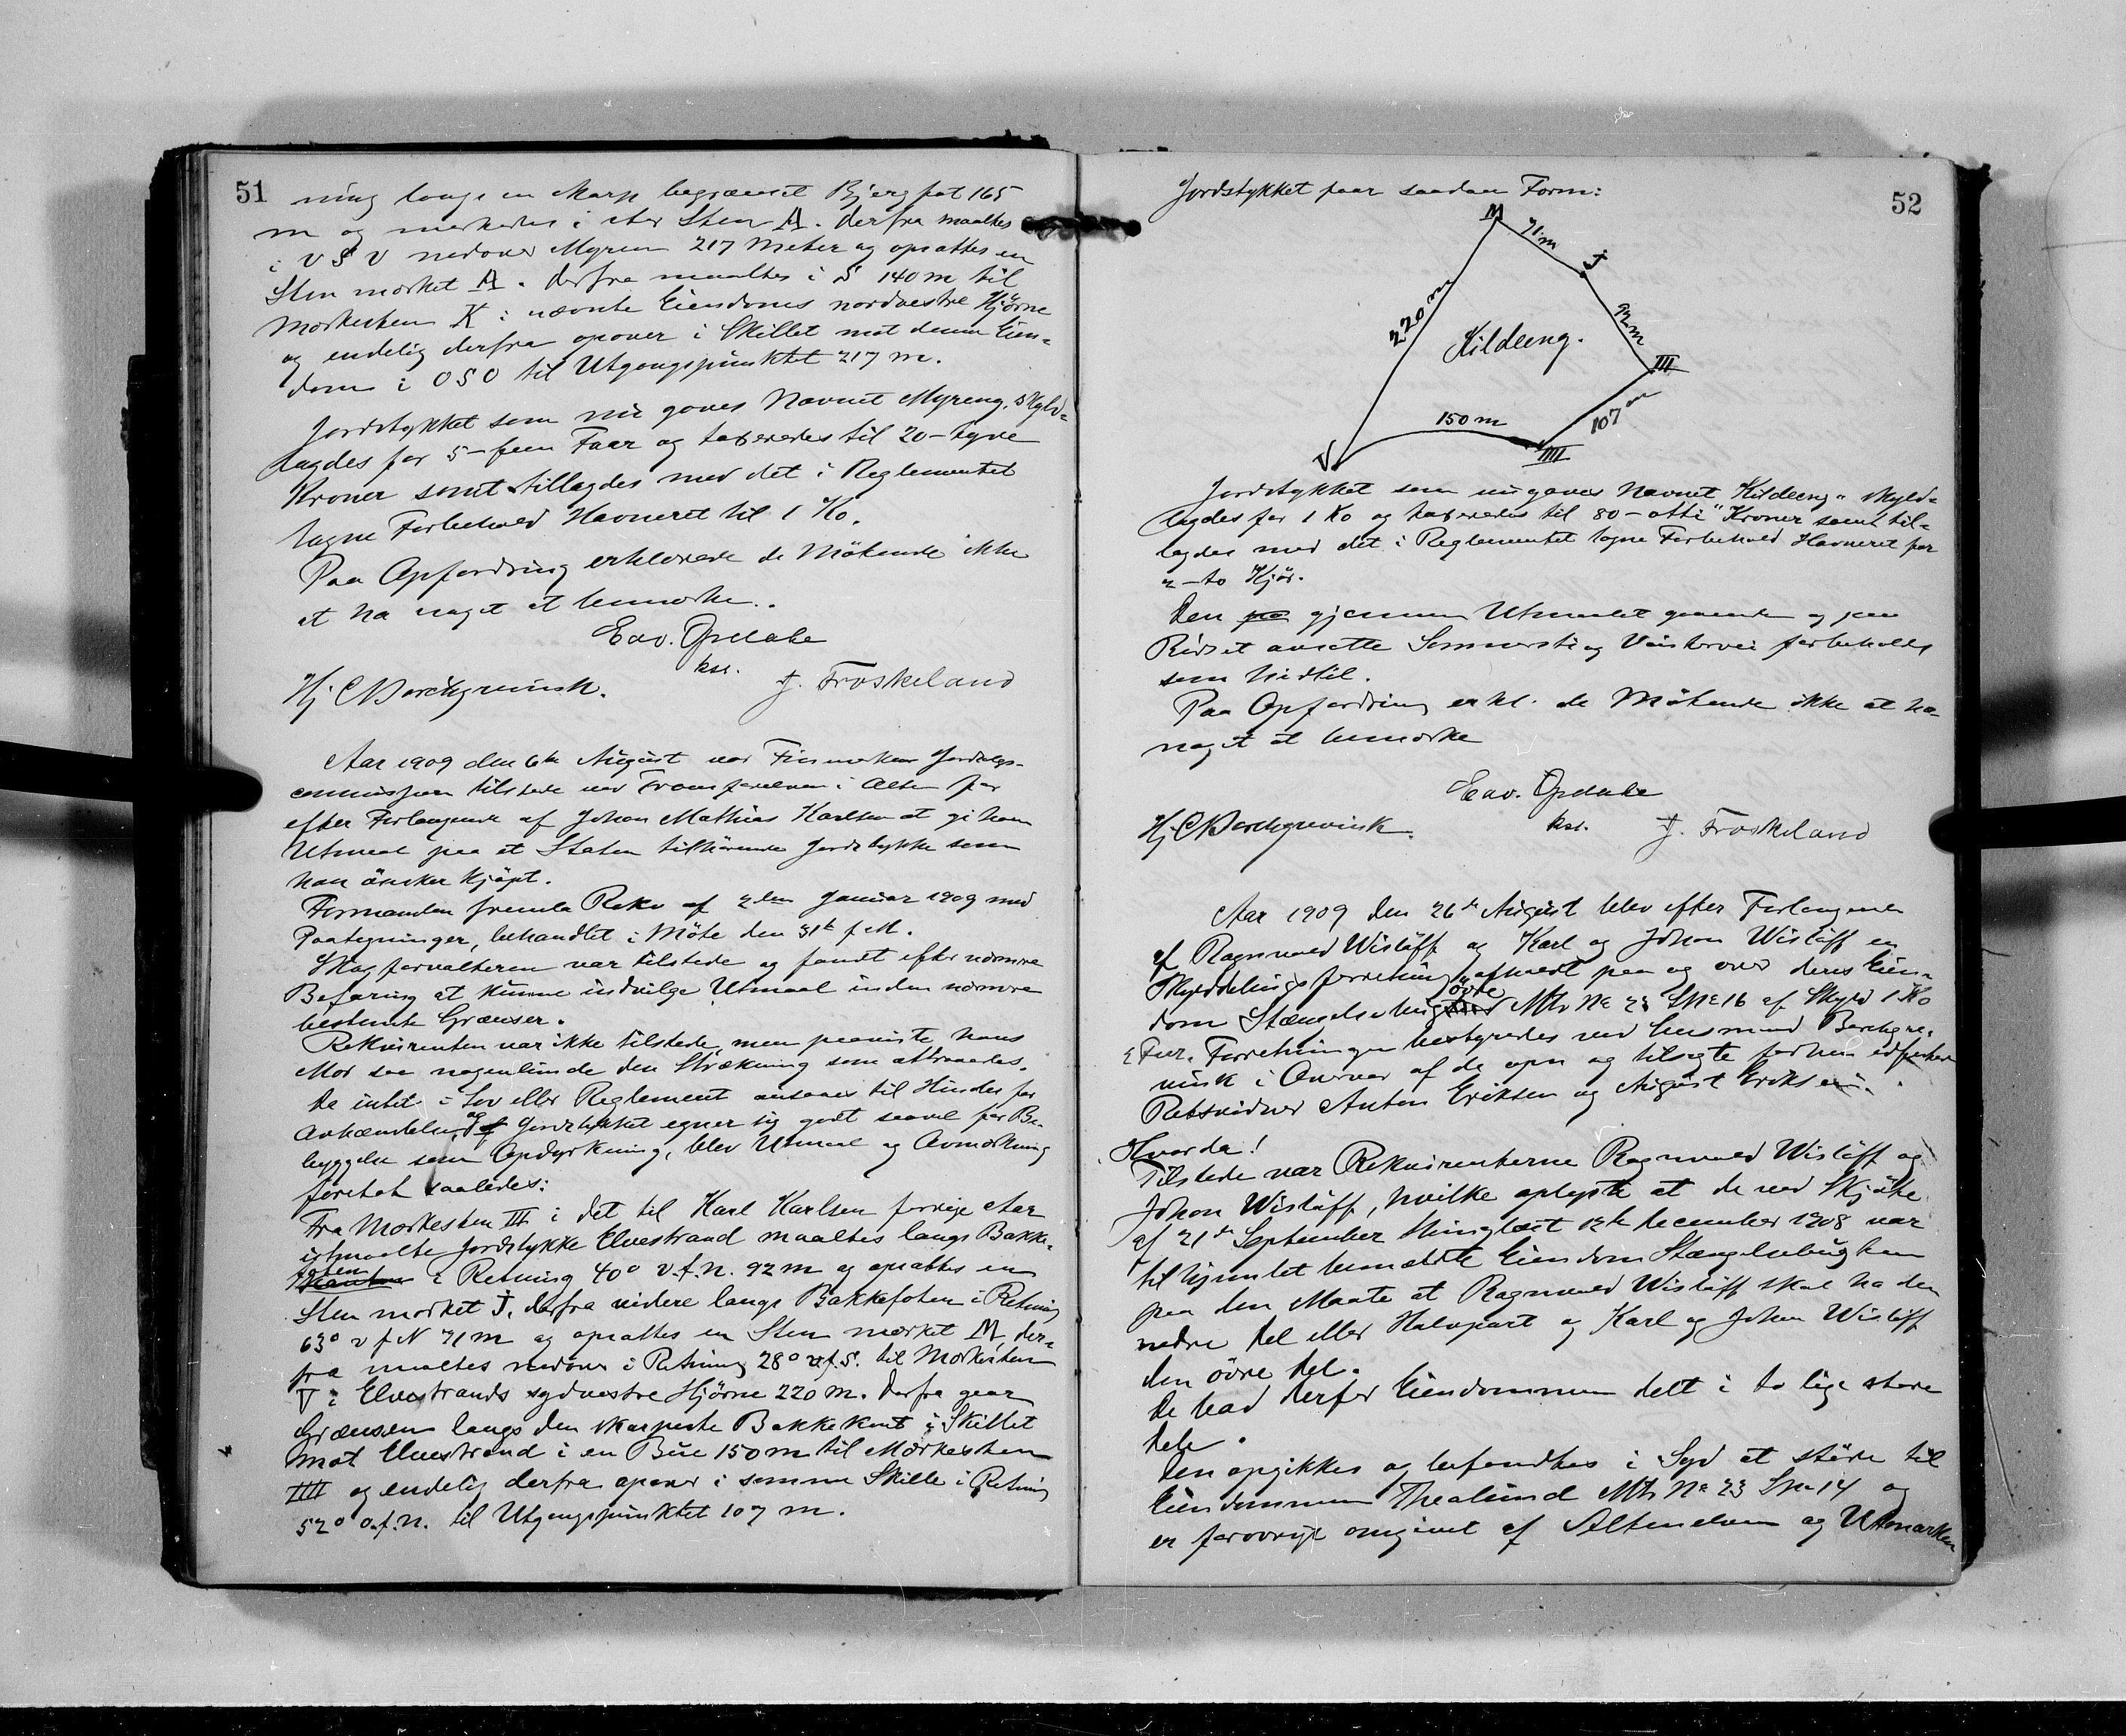 51
ning langs en skarp begrænset Bjergfot 165
m og merkedes i stor Sten A. Derfra maaltes
i V S V nedover Myren 217 Meter og opsattes en
Sten mærket A. Derfra maaltes i S 140 m til
Merkesten K i nævnte Eiendoms nordvestre Hjörne
og endelig derfra opover i Skillet mot denne Eien-
dom i O S O til Utgangspunktet 217 m.
Jordstykket som nu gaves Navnet Myreng, skyld-
lagdes for 5 - fem Faar og taxeredes til 20 - tyve
Kroner samt tillagdes med det i Reglementet
tagne Forbehold Havneret til 1 Ko.
Paa Opfordring erklærede de Mötende ikke
at ha noget at bemerke.
Edv. Opdahl
kst.
Hj. C Borchgrevink. J. Froskeland
Aar 1909 den 6te August var Finmarkens Jordsalgs-
commission tilstede ved Tranfarelven i Alten for
efter Forlangende af Johan Mathias Karlsen at gi ham
Utmaal paa et Staten tilhörende Jordstykke som
han önsker kjöpt.
Formanden fremla Rekv af 2den Januar 1909 med
Paategninger, behandlet i Möte den 31te f. M.
Skogforvalteren var tilstede og fandt efter nærmere
Befaring at kunne indvilge Utmaal inden nærmere
bestemte Grænser.
Rekvirenten var ikke tilstede, men paaviste hans
Mor saa nogenlunde den Strækning som attraaedes.
Da intet i Lov eller Reglement ansaaes til Hinder for
Avhændelse, og Jordstykket egner sig godt saavel for Be-
byggelse som Opdyrkning, blev Utmaal og Avmerkning
foretat saaledes:
Fra Merkesten III i det til Karl Karlsen forrige Aar
utmaalte Jordstykke Elvestrand maaltes langs Bakke-
foten i Retning 40° v.f.n. 92 m og opsattes en
Sten merket J, derfra videre langs Bakkefoten i Retning
63° v f N 71 m og opsattes en Sten mærket M, der-
fra maaltes nedover i Retning 28° v.f.S. til Merkesten
V i Elvestrands sydvestre Hjörne 220 m. Derfra gaar
Grænsen langs den skarpeste Bakkekant i Skillet
mot Elvestrand i en Bue 150 m til Mærkesten
IIII og endelig derfra opover i samme Skille i Retning
52° o.f.n. til Utgangspunktet 107 m.
52
Jordstykket faar saadan Form:
M
71 m
J
92 m
220 m
Kildeeng.
III
107 m
150 m
V
IIII
Jordstykket som nu gaves Navnet "Kildeeng" skyld-
lagdes for 1 Ko og taxeredes til 80 - otti Kroner samt til-
lagdes med det i Reglementet tagne Forbehold Havneret for
2 - to Kjör.
Den gjennem Utmaalet gaaende og paa
Ridset avsatte Sommersti og Vintervei forbeholdes
som hidtil.
Paa Opfordring erkl. de Mötende ikke at ha
noget at bemerke
Edv. Opdahl
kst.
Hj. C Borchgrevink. J. Froskeland
Aar 1909 den 26de August blev efter Forlangende
af Ragnvald Wislöff og Karl og Johan Wislöff en
Skylddelingsforretning avholdt paa og over deres Eien-
dom Stængelsebugten övre Mtr Nr 23 LNr 16 af Skyld 1 Ko
2 Faar. Forretningen bestyredes ved Lensmand Borchgre-
vink i Overvær af de opn og tilsagte forhen edfæstede
Retsvidner Anton Eriksen og August Eriksen.
Hvorda!
Tilstede var Rekvirenterne Ragnvald Wislöff og
Johan Wislöff, hvilke oplyste at de ved Skjöte
af 21de September thinglæst 12te December 1908 var
tilhjemlet bemeldte Eiendom Stængelsebugten
paa den Maate at Ragnvald Wislöff skal ha den
nedre Del eller Halvpart og Karl og Johan Wislöff
den övre Del.
De bad derfor Eiendommen delt i to lige store
Dele.
Den opgikkes og befandtes i Syd at støde til
Eiendommen Thealund Mtr Nr 23 LNr 14 og
er forövrigt omgivet af Altenelven og Utmarken